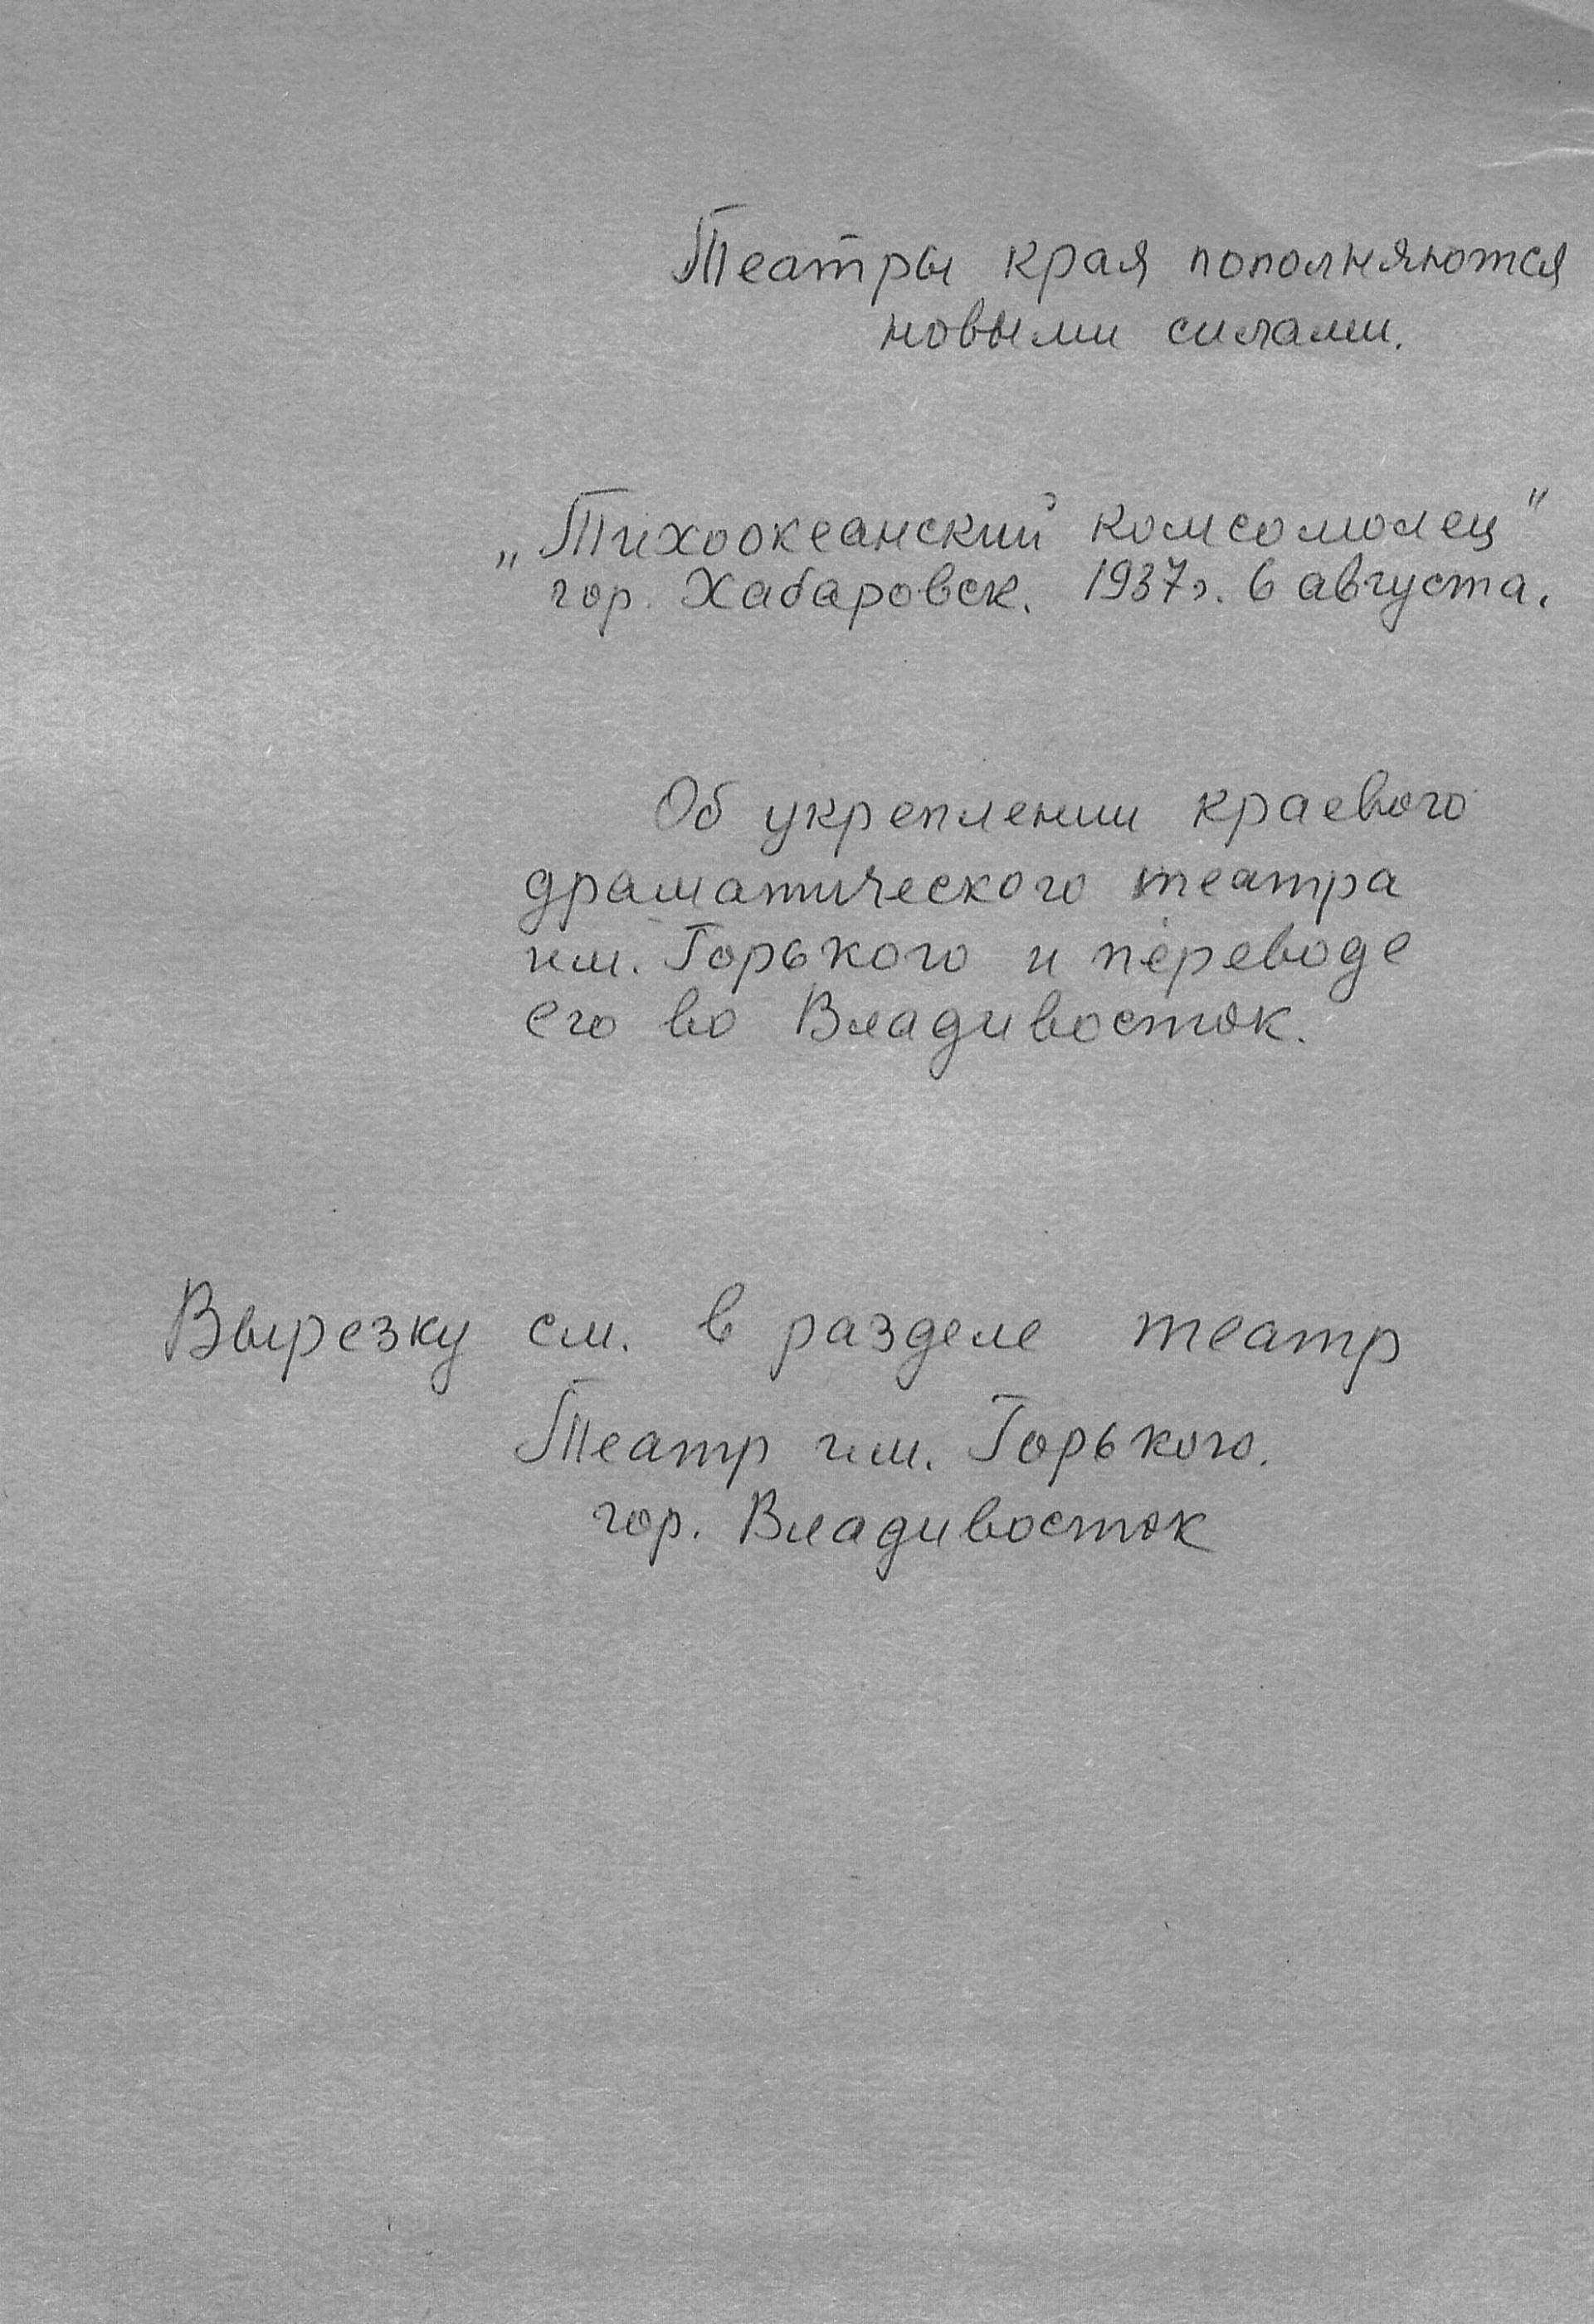 Театры края пополняются
новыми силами.
„Тихоокеанский комсомолец"
гор. Хабаровск. 1937г. 6 августа.
Об укреплении краевого
драматического театра
им. Горького и переводе
его во Владивосток.
Вырезку см. в разделе театр
Театр им. Горького.
гор. Владивосток